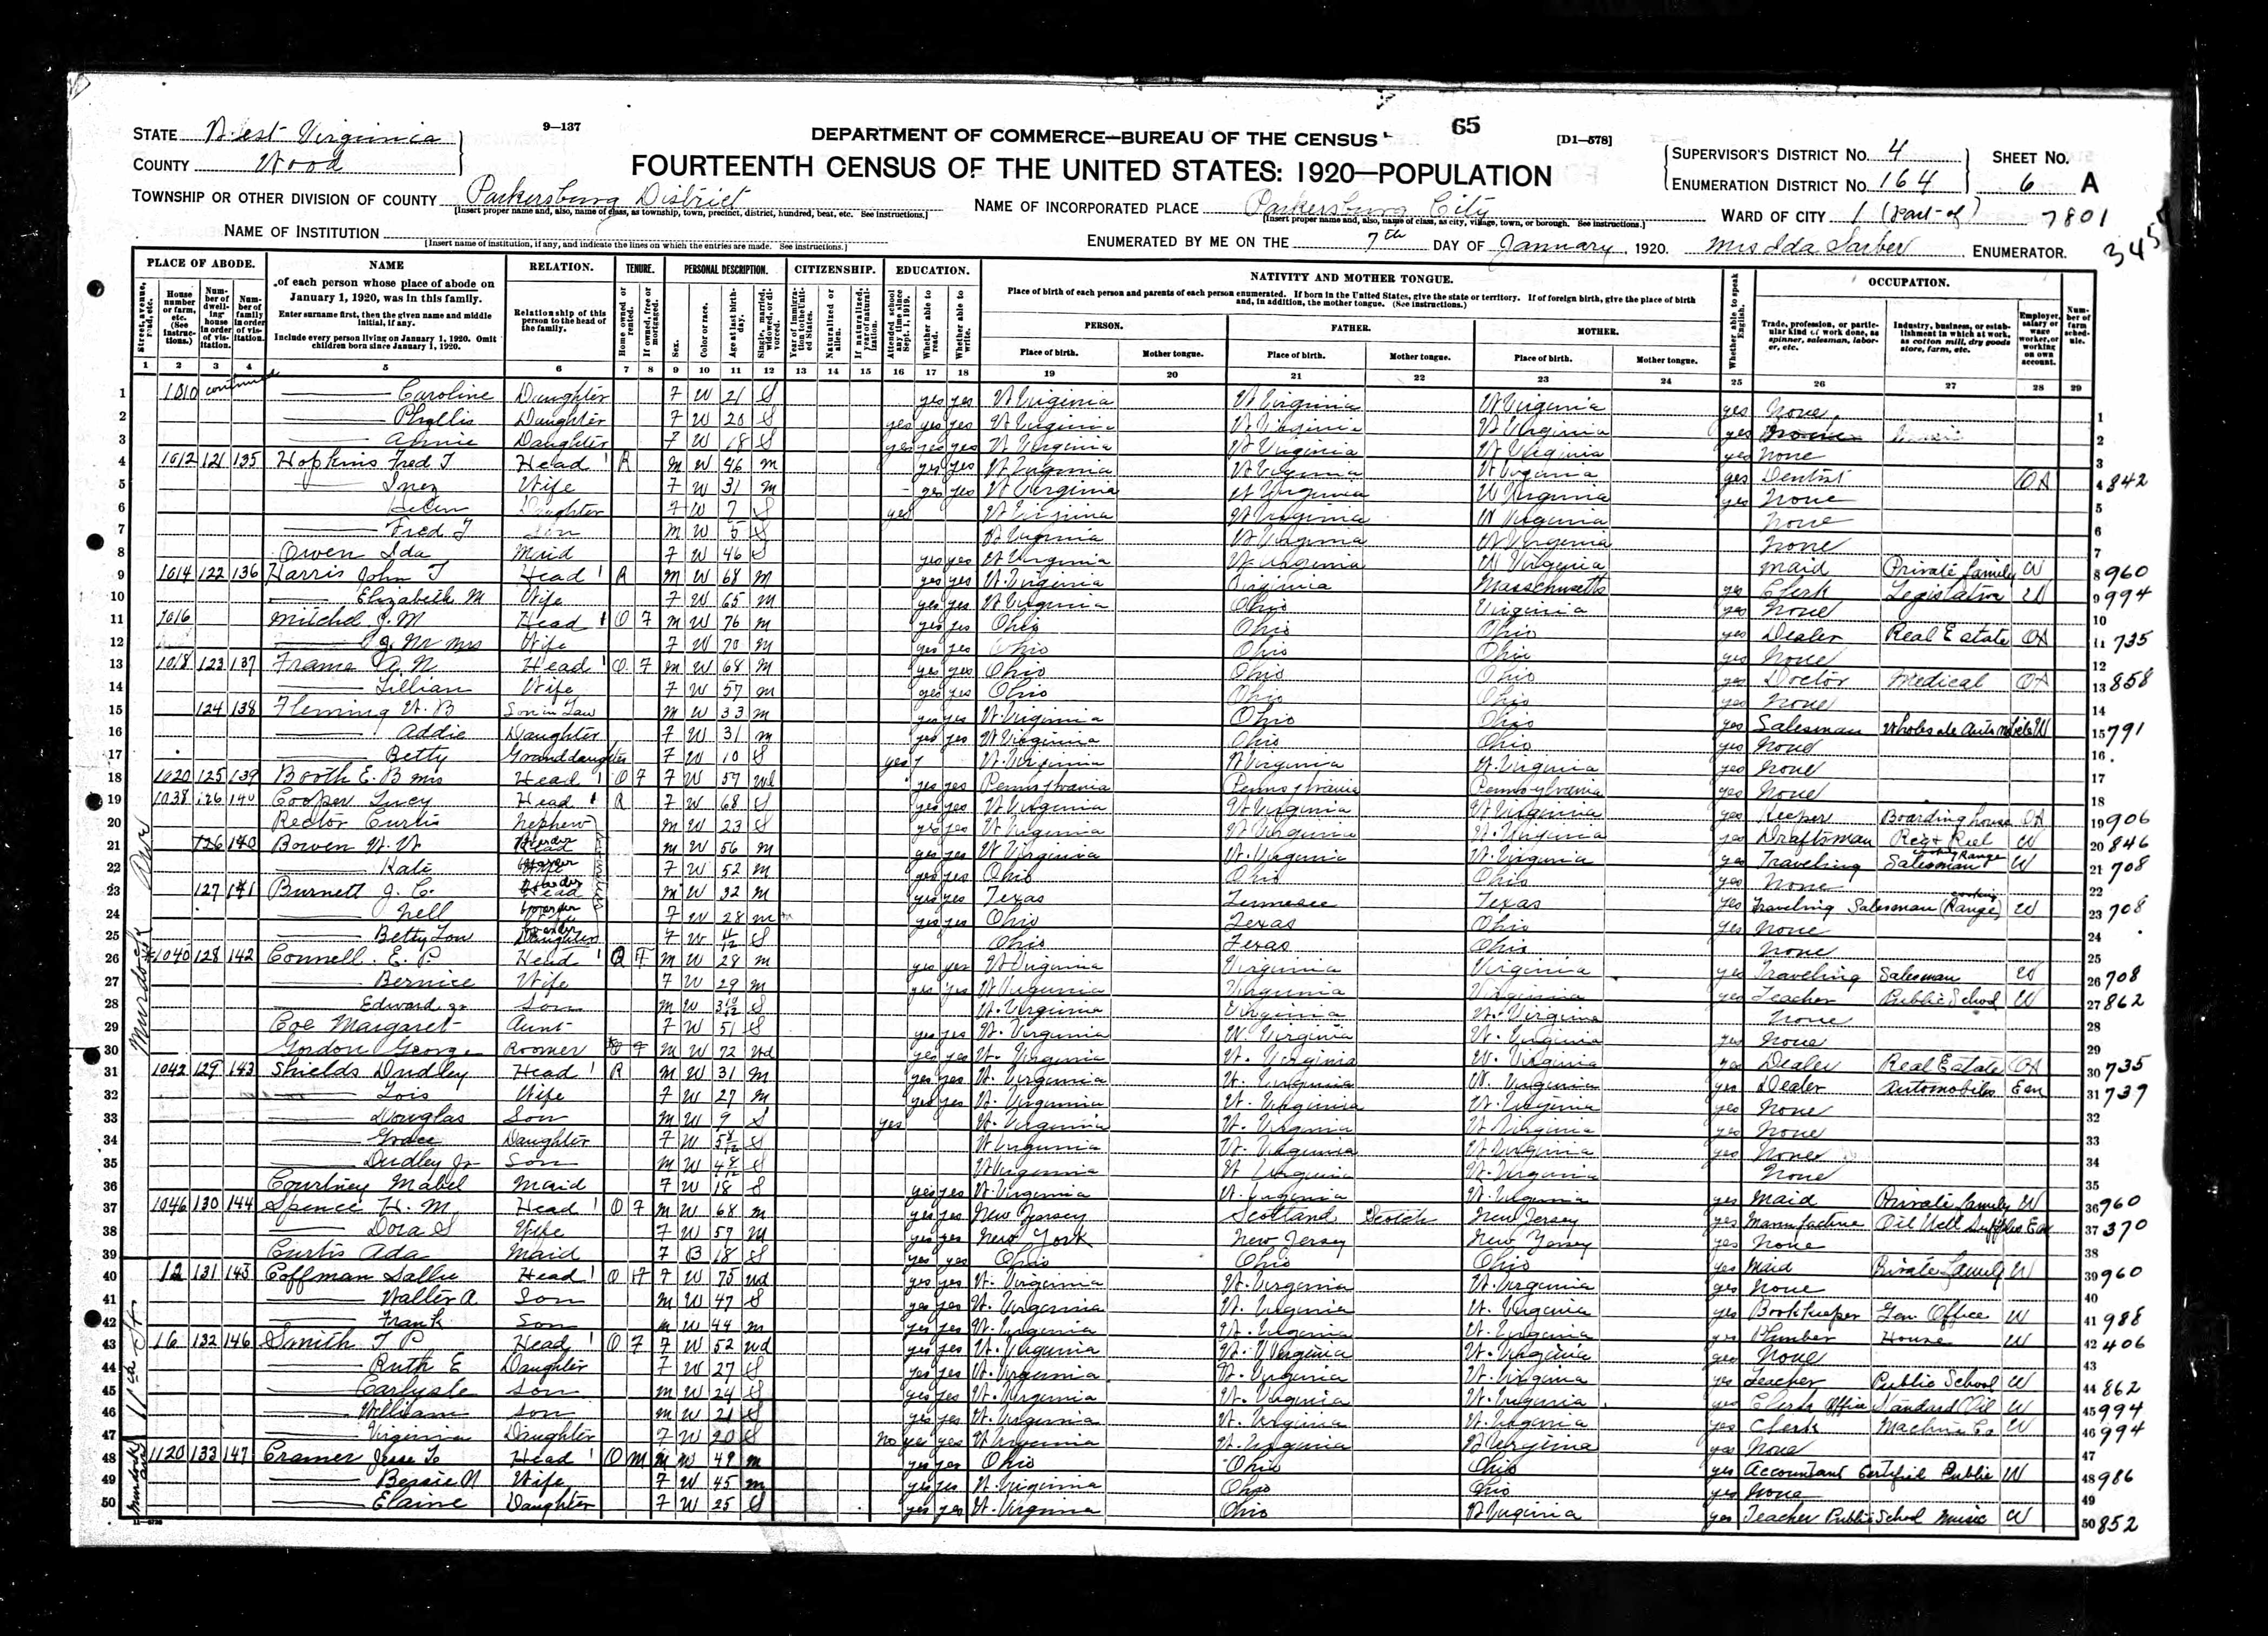 65
STATE West Virginia 9–137 DEPARTMENT OF COMMERCE—BUREAU OF THE CENSUS [D1—578]
COUNTY Wood FOURTEENTH CENSUS OF THE UNITED STATES: 1920—POPULATION
SUPERVISOR'S DISTRICT No. 4 SHEET No.
ENUMERATION DISTRICT No. 164 6 A
TOWNSHIP OR OTHER DIVISION OF COUNTY Parkersburg District NAME OF INCORPORATED PLACE Parkersburg City WARD OF CITY 1 (part of) 7801
[Insert proper name and, also, name of class, as township, town, precinct, district, hundred, beat, etc. See instructions.] [Insert proper name and, also, name of class, as city, village, town, or borough. See instructions.]
NAME OF INSTITUTION
[Insert name of institution, if any, and indicate the lines on which the entries are made. See instructions.]
ENUMERATED BY ME ON THE 7th DAY OF January, 1920. Mrs Ida Sarber ENUMERATOR.
PLACE OF ABODE. NAME RELATION. TENURE. PERSONAL DESCRIPTION. CITIZENSHIP. EDUCATION. NATIVITY AND MOTHER TONGUE. OCCUPATION.
of each person whose place of abode on January 1, 1920, was in this family.
Enter surname first, then the given name and middle initial, if any.
Include every person living on January 1, 1920. Omit children born since January 1, 1920.
Relationship of this person to the head of the family.
Place of birth of each person and parents of each person enumerated. If born in the United States, give the state or territory. If of foreign birth, give the place of birth and, in addition, the mother tongue. (See instructions.)
PERSON. FATHER. MOTHER.
Place of birth. Mother tongue. Place of birth. Mother tongue. Place of birth. Mother tongue.
1 2 3 4 5 6 7 8 9 10 11 12 13 14 15 16 17 18 19 20 21 22 23 24 25 26 27 28 29
1 1010 continued Caroline Daughter F W 21 S yes yes W Virginia W Virginia W Virginia yes None
2 Phyllis Daughter F W 20 S yes yes yes W Virginia W Virginia W Virginia yes None
3 Annie Daughter F W 18 S yes yes yes W Virginia W Virginia W Virginia yes None
4 1012 121 135 Hopkins Fred T Head R M W 46 M yes yes W Virginia W Virginia W Virginia yes Dentist OA 842
5 Inez Wife F W 31 M yes yes W Virginia W Virginia W Virginia yes None
6 Helen Daughter F W 7 S yes W Virginia W Virginia W Virginia None
7 Fred T Son M W 5 S W Virginia W Virginia W Virginia None
8 Owen Ida Maid F W 46 S yes yes W Virginia W Virginia W Virginia Maid Private family W 960
9 1014 122 136 Harris John T Head R M W 68 M yes yes W. Virginia Virginia Massachusetts yes Clerk Legislature W 994
10 Elizabeth M Wife F W 65 M yes yes W Virginia Ohio Virginia yes None
11 1016 Mitchel J. M Head O F M W 76 M yes yes Ohio Ohio Ohio yes Dealer Real Estate OA 735
12 J. M Mrs Wife F W 70 M yes yes Ohio Ohio Ohio yes None
13 1018 123 137 Frame A. N. Head O F M W 68 M yes yes Ohio Ohio Ohio yes Doctor Medical OA 858
14 Lillian Wife F W 57 M yes yes Ohio Ohio Ohio yes None
15 124 138 Fleming W. B Son in Law M W 33 M yes yes W. Virginia Ohio Ohio yes Salesman Wholesale Automobile W 791
16 Addie Daughter F W 31 M yes yes W Virginia Ohio Ohio yes None
17 Betty Granddaughter F W 10 S yes W. Virginia W Virginia W. Virginia yes None
18 1020 125 139 Booth E. B Mrs Head O F F W 57 Wd yes yes Pennsylvania Pennsylvania Pennsylvania yes None
19 1038 126 140 Cooper Lucy Head R F W 68 S yes yes W Virginia W Virginia W Virginia yes Keeper Boarding house OA 906
20 Rector Curtis Nephew M W 23 S yes yes W Virginia W Virginia W. Virginia yes Draftsman W 846
21 126 140 Bowen W. W Boarder M W 56 M yes yes W Virginia W. Virginia W. Virginia yes Traveling Salesman Range W 708
22 Kate F W 52 M yes yes Ohio Ohio Ohio yes None
23 127 141 Burnett J. C. Boarder M W 32 M yes yes Texas Tennessee Texas yes Traveling Salesman (Range) W 708
24 Nell F W 28 M yes yes Ohio Texas Ohio yes None
25 Betty Lou Daughter F W S Ohio Texas Ohio None
26 1040 128 142 Connell. E. P Head O F M W 28 M yes yes W Virginia Virginia Virginia yes Traveling Salesman W 708
27 Bernice Wife F W 29 M yes yes W Virginia Virginia Virginia yes Teacher Public School W 862
28 Edward Jr Son M W 3 10/12 S W. Virginia Virginia W. Virginia None
29 Coe Margaret Aunt F W 51 S yes yes W. Virginia W. Virginia W. Virginia yes None
30 Gordon George Roomer M W 72 Wd yes yes W. Virginia W. Virginia W. Virginia yes Dealer Real Estate OA 735
31 1042 129 143 Shields Dudley Head R M W 31 M yes yes W. Virginia W. Virginia W. Virginia yes Dealer Automobiles Em 737
32 Lois Wife F W 27 M yes yes W. Virginia W. Virginia W. Virginia yes None
33 Douglas Son M W 9 S yes W. Virginia W. Virginia W Virginia yes None
34 Grace Daughter F W S W Virginia W. Virginia W Virginia yes None
35 Dudley Jr Son M W S W Virginia W Virginia W. Virginia None
36 Courtney Mabel Maid F W 18 S yes yes W. Virginia W. Virginia W. Virginia yes Maid Private family W 960
37 1046 130 144 Spence H. M. Head O F M W 68 M yes yes New Jersey Scotland Scotch New Jersey yes Manufacture Oil Well Supplies Em 370
38 Dora S Wife F W 57 M yes yes New York New Jersey New Jersey yes None
39 Curtis Ada Maid F B 18 S yes yes Ohio Ohio Ohio yes Maid Private Family W 960
40 12 131 145 Coffman Sallie Head O F F W 75 Wd yes yes W. Virginia W. Virginia W. Virginia yes None
41 Walter A. Son M W 47 S yes yes W. Virginia W. Virginia W. Virginia yes Bookkeeper Gen Office W 988
42 Frank Son M W 44 M yes yes W. Virginia W. Virginia W. Virginia yes Plumber House W 406
43 16 132 146 Smith T P Head O F F W 52 Wd yes yes W. Virginia W. Virginia W. Virginia yes None
44 Ruth E Daughter F W 27 S yes yes W. Virginia W. Virginia W. Virginia yes Teacher Public School W 862
45 Carlysle Son M W 24 S yes yes W. Virginia W. Virginia W. Virginia yes Clerk Office Standard Oil W 994
46 William Son M W 21 S yes yes W. Virginia W. Virginia W. Virginia yes Clerk Machine Co W 994
47 Virginia Daughter F W 20 S No yes yes W Virginia W. Virginia W Virginia yes None
48 1120 133 147 Cramer Jesse L Head O M M W 49 M yes yes Ohio Ohio Ohio yes Accountant Certified Public W 986
49 Bessie N Wife F W 45 M yes yes W Virginia Ohio Ohio yes None
50 Elaine Daughter F W 25 S yes yes W. Virginia Ohio W Virginia yes Teacher Public School Music W 852
Murdock Ave
11th St